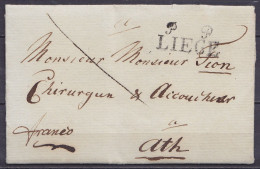 à
P P
LIEGE
Monsieur Monsieur Sion
Chirurgien & Accoucheur
à
franco
Ath